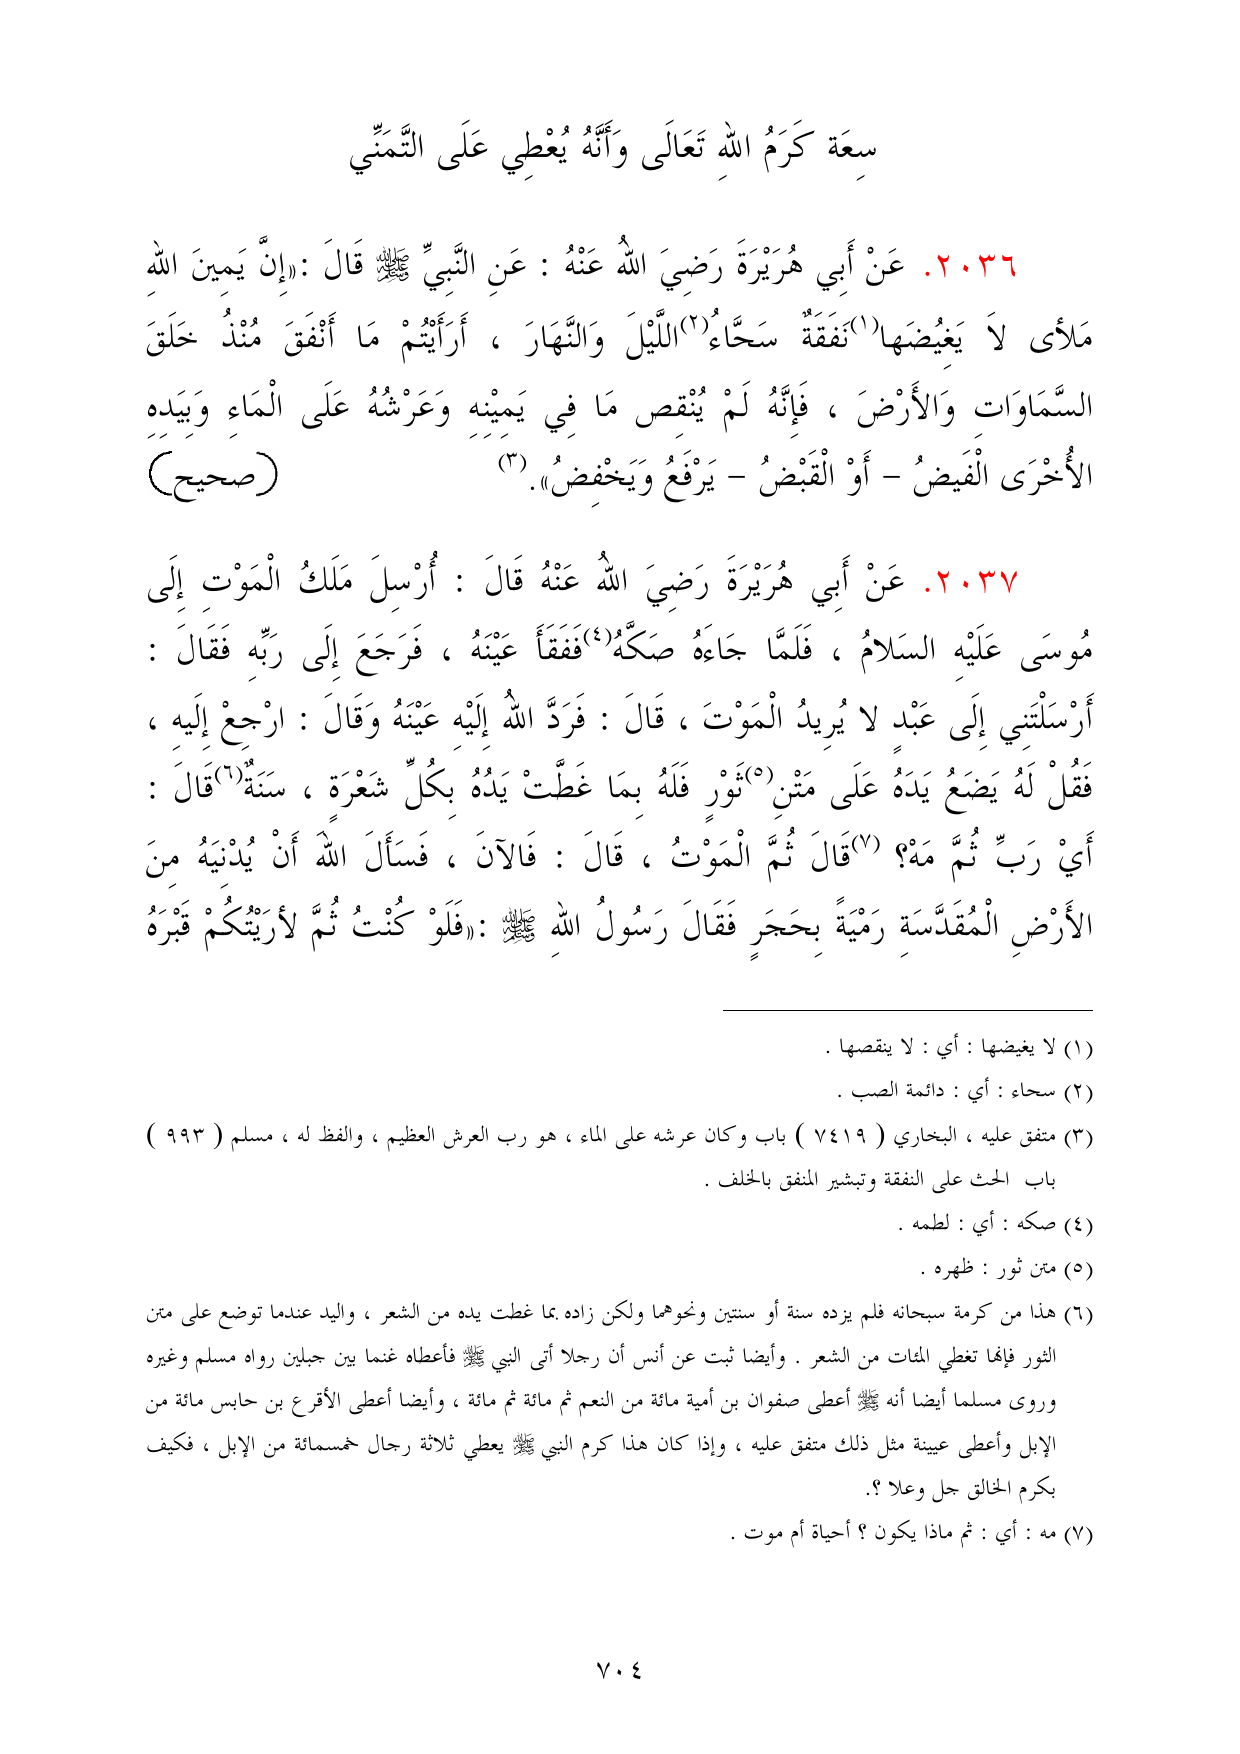 سِعَة كَرَمُ اللهِ تَعَالَى وَأَنَّهُ يُعْطِي عَلَى التَّمَنِّي
٢٠٣٦. عَنْ أَبِي هُرَيْرَةَ رَضِيَ اللهُ عَنْهُ : عَنِ النَّبِيِّ ﷺ قَالَ :«إِنَّ يَمِينَ اللهِ
مَلأى لاَ يَغِيُضَها(١)نَفَقَةٌ سَحَّاءُ(٢)اللَّيْلَ وَالنَّهَارَ ، أَرَأَيْتُمْ مَا أَنْفَقَ مُنْذُ خَلَقَ
السَّمَاوَاتِ وَالأَرْضَ ، فَإِنَّهُ لَمْ يُنْقِص مَا فِي يَمِيْنِهِ وَعَرْشُهُ عَلَى الْمَاءِ وَبِيَدِهِ
الأُخْرَى الْفَيضُ – أَوْ الْقَبْضُ – يَرْفَعُ وَيَخْفِضُ».(٣) (صحيح)
٢٠٣٧. عَنْ أَبِي هُرَيْرَةَ رَضِيَ اللهُ عَنْهُ قَالَ : أُرْسِلَ مَلَكُ الْمَوْتِ إِلَى
مُوسَى عَلَيْهِ السَلامُ ، فَلَمَّا جَاءَهُ صَكَّهُ(٤)فَفَقَأَ عَيْنَهُ ، فَرَجَعَ إِلَى رَبِّهِ فَقَالَ :
أَرْسَلْتَنِي إِلَى عَبْدٍ لا يُرِيدُ الْمَوْتَ ، قَالَ : فَرَدَّ اللهُ إِلَيْهِ عَيْنَهُ وَقَالَ : ارْجِعْ إِلَيهِ ،
فَقُلْ لَهُ يَضَعُ يَدَهُ عَلَى مَتْنِ(٥)ثَوْرٍ فَلَهُ بِمَا غَطَّتْ يَدُهُ بِكُلِّ شَعْرَةٍ ، سَنَةٌ(٦)قَالَ :
أَيْ رَبِّ ثُمَّ مَهْ؟ (٧)قَالَ ثُمَّ الْمَوْتُ ، قَالَ : فَالآنَ ، فَسَأَلَ اللهَ أَنْ يُدْنِيَهُ مِنَ
الأَرْضِ الْمُقَدَّسَةِ رَمْيَةً بِحَجَرٍ فَقَالَ رَسُولُ اللهِ ﷺ :«فَلَوْ كُنْتُ ثُمَّ لأرَيْتُكُمْ قَبْرَهُ
(١) لا يغيضها : أي : لا ينقصها .
(٢) سحاء : أي : دائمة الصب .
(٣) متفق عليه ، البخاري ( ٧٤١٩ ) باب وكان عرشه على الماء ، هو رب العرش العظيم ، والفظ له ، مسلم ( ٩٩٣ )
باب الحث على النفقة وتبشير المنفق بالخلف .
(٤) صكه : أي : لطمه .
(٥) متن ثور : ظهره .
(٦) هذا من كرمة سبحانه فلم يزده سنة أو سنتين ونحوهما ولكن زاده بما غطت يده من الشعر ، واليد عندما توضع على متن
الثور فإنها تغطي المئات من الشعر . وأيضا ثبت عن أنس أن رجلا أتى النبي ﷺ فأعطاه غنما بين جبلين رواه مسلم وغيره
وروى مسلما أيضا أنه ﷺ أعطى صفوان بن أمية مائة من النعم ثم مائة ثم مائة ، وأيضا أعطى الأقرع بن حابس مائة من
الإبل وأعطى عيينة مثل ذلك متفق عليه ، وإذا كان هذا كرم النبي ﷺ يعطي ثلاثة رجال خمسمائة من الإبل ، فكيف
بكرم الخالق جل وعلا ؟.
(٧) مه : أي : ثم ماذا يكون ؟ أحياة أم موت .
٧٠٤